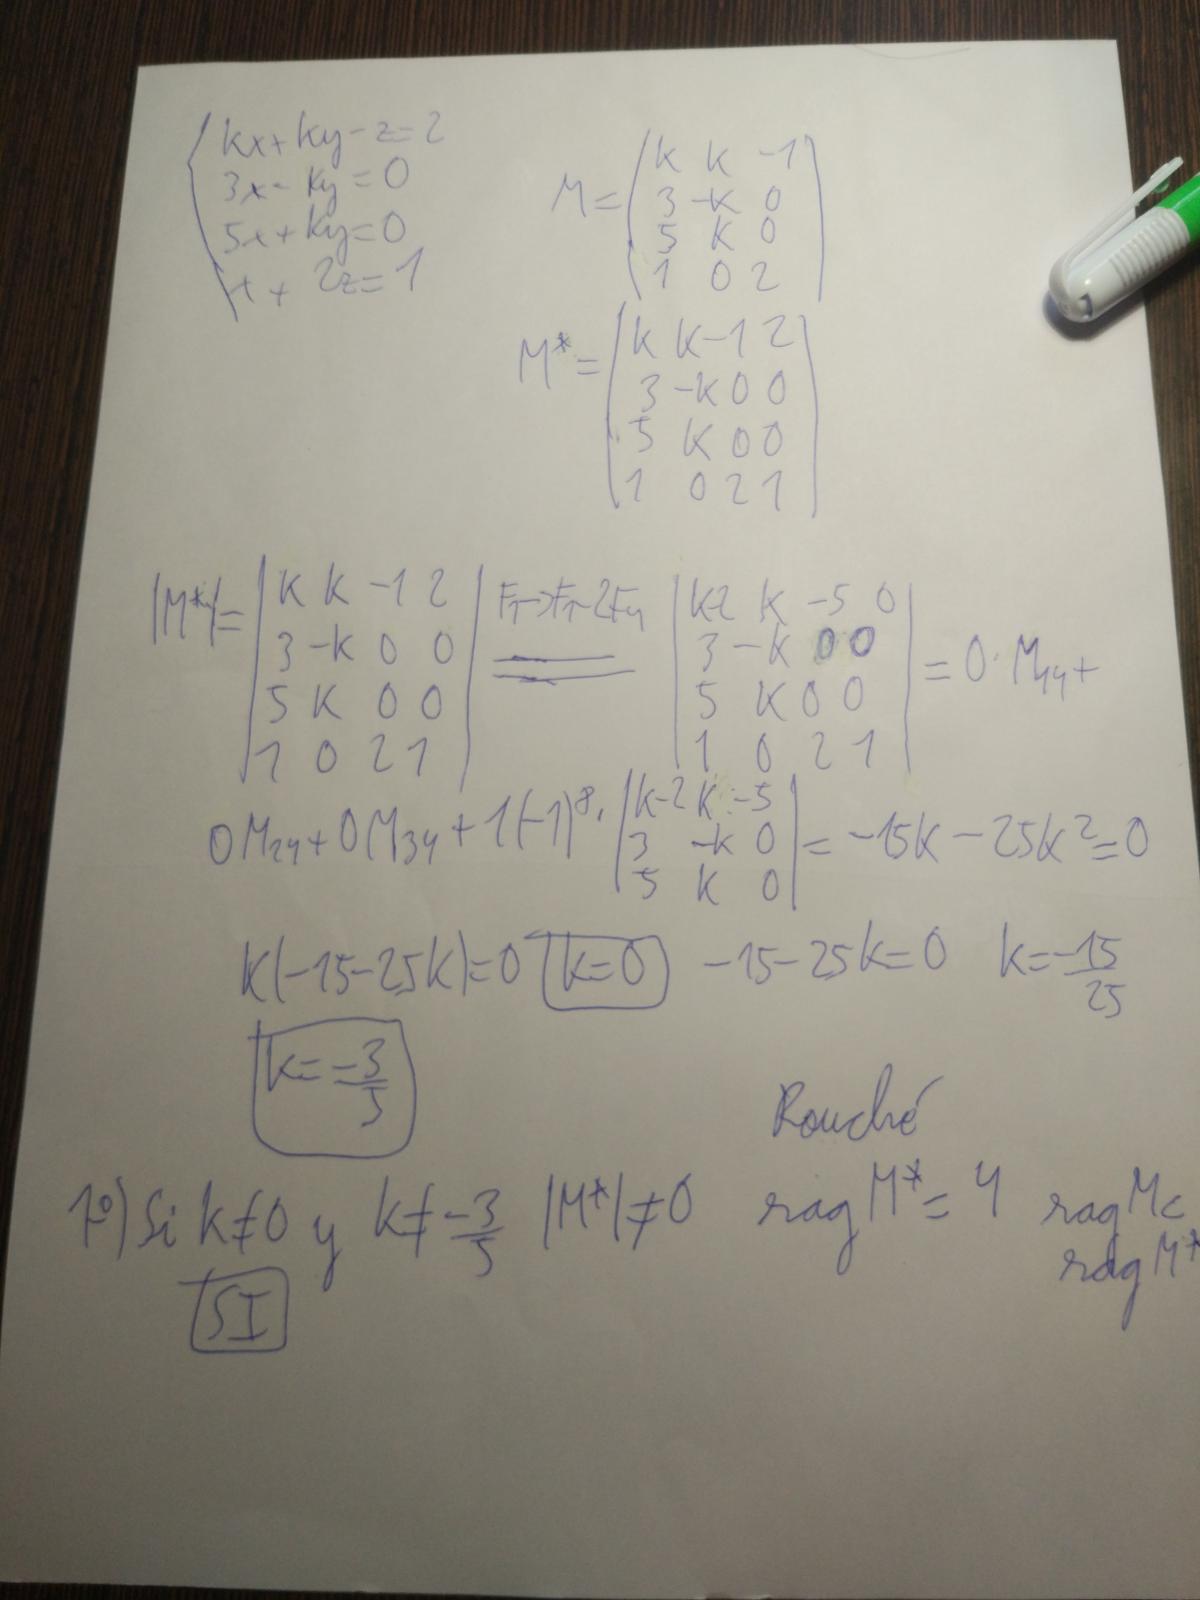 kx+ky-z=2
3x-ky=0
5x+ky=0
x+ 2z=1
M= ( k k -1
3 -k 0
5 k 0
1 0 2 )
M*= ( k k -1 2
3 -k 0 0
5 k 0 0
1 0 2 1 )
|M*|= | k k -1 2 | F1→F1-2F4 | k-2 k -5 0 |
| 3 -k 0 0 | | 3 -k 0 0 | = 0·M14+
| 5 k 0 0 | | 5 k 0 0 |
| 1 0 2 1 | | 1 0 2 1 |
0M24+0M34+1(-1)^8· | k-2 k -5 |
| 3 -k 0 | = -15k-25k²=0
| 5 k 0 |
k(-15-25k)=0 k=0 -15-25k=0 k=-15/25
k=-3/5
Rouché
1º) Si k≠0 y k≠-3/5 |M*|≠0 rag M*=4 rag M<
rag M*
SI